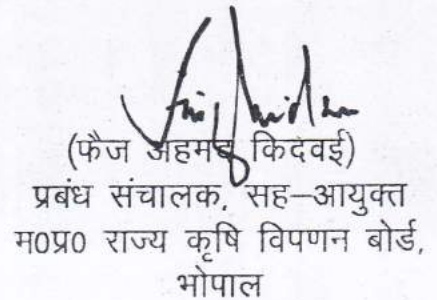 (फैज अहमद किदवई)
प्रबंध संचालक, सह–आयुक्त
म0प्र0 राज्य कृषि विपणन बोर्ड,
भोपाल